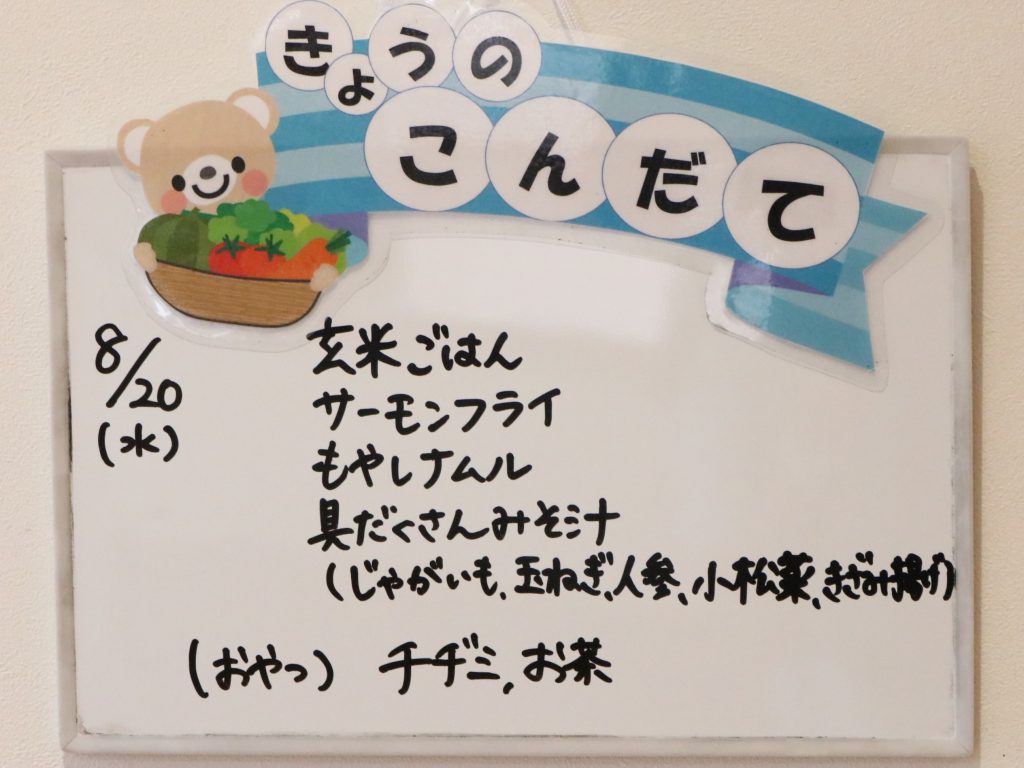 きょうの
こんだて
8/20
(水)
玄米ごはん
サーモンフライ
もやしナムル
具だくさんみそ汁
(じゃがいも、玉ねぎ、人参、小松菜、きざみ揚げ)
(おやつ) チヂミ、お茶